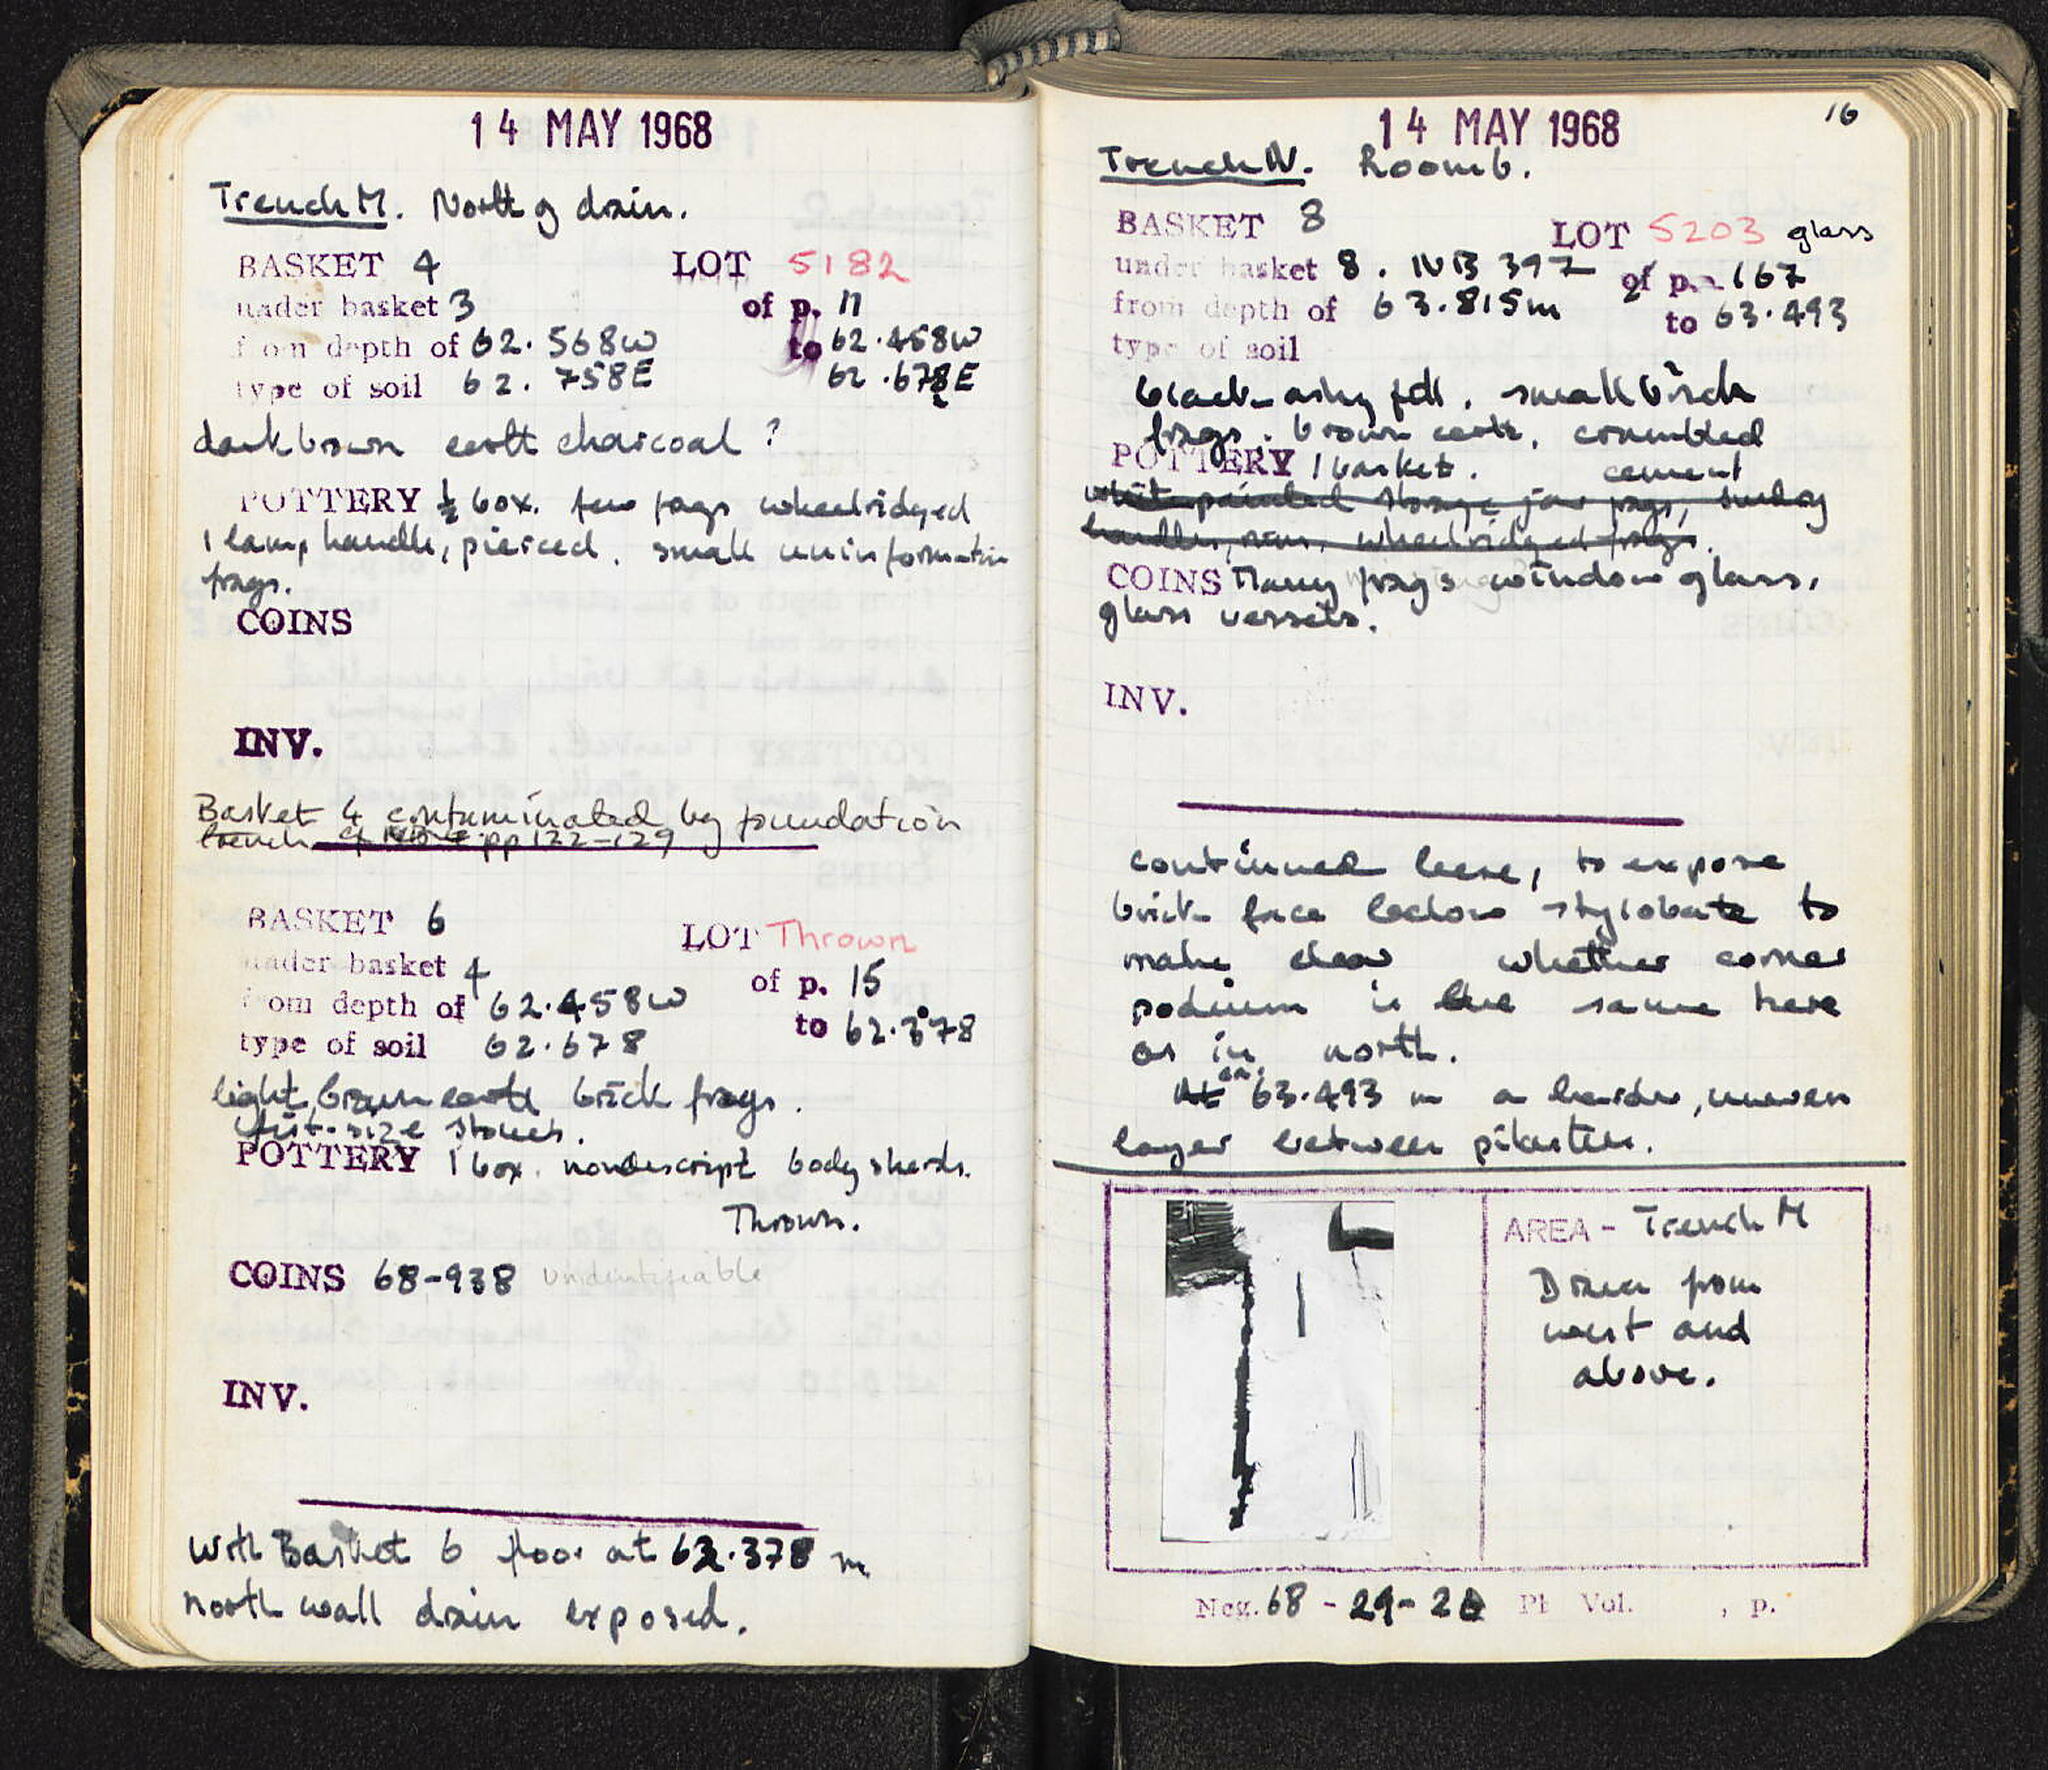 14 MAY 1968
Trench M. North of drain.
BASKET 4 LOT 5182
under basket 3 of p. 11
from depth of 62.568W to 62.458W
type of soil 62.758E 62.678E
dark brown earth charcoal ?
POTTERY ½ box. few frags wheelridged
1 lamp handle, pierced. small uninformative
frags.
COINS
INV.
Basket 4 contaminated by foundation
trench pp 122-129
BASKET 6 LOT Thrown
under basket 4 of p. 15
from depth of 62.458W to 62.378
type of soil 62.678
light brown earth brick frags.
fist-size stones.
POTTERY 1 box. nondescript body sherds.
Thrown.
COINS 68-938 unidentifiable
INV.
With Basket 6 floor at 62.378 m
north wall drain exposed.
14 MAY 1968 16
Trench N. Room 6.
BASKET 8 LOT 5203 glass
under basket 8. NB 397 of p. 167
from depth of 63.815m to 63.493
type of soil
black ashy fill. small brick
frags. brown earth, crumbled
cement
POTTERY 1 basket.
white painted storage jar frags,
handles, rims, wheelridged frags.
COINS Many frags window glass,
glass vessels.
INV.
continued here, to expose
brick face below stylobate to
make clear whether corner
podium is the same here
as in north.
At 63.493 m a harder, uneven
layer between pilasters.
AREA - Trench M
Drain from
west and
above.
Neg. 68-29-20 Pl Vol. , p.